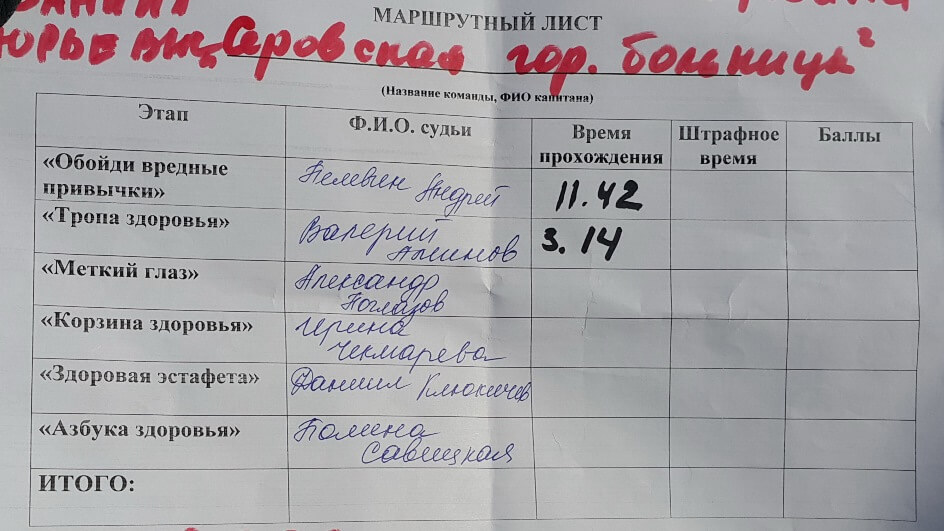 МАРШРУТНЫЙ ЛИСТ
Серовская гор. больница"
(Название команды, ФИО капитана)
Этап Ф.И.О. судьи Время прохождения Штрафное время Баллы
«Обойди вредные привычки» Пелевин Андрей 11.42
«Тропа здоровья» Валерий Аминов 3.14
«Меткий глаз» Александр Поглазов
«Корзина здоровья» Ирина Чекмарева
«Здоровая эстафета» Даниил
«Азбука здоровья» Полина Савицкая
ИТОГО: